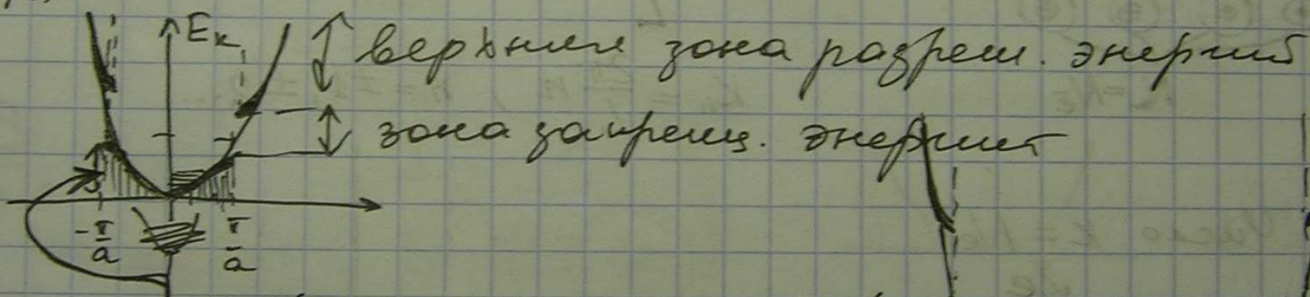 E_k
верхняя зона разреш. энергий
зона запрещ. энергий
-π/a
π/a